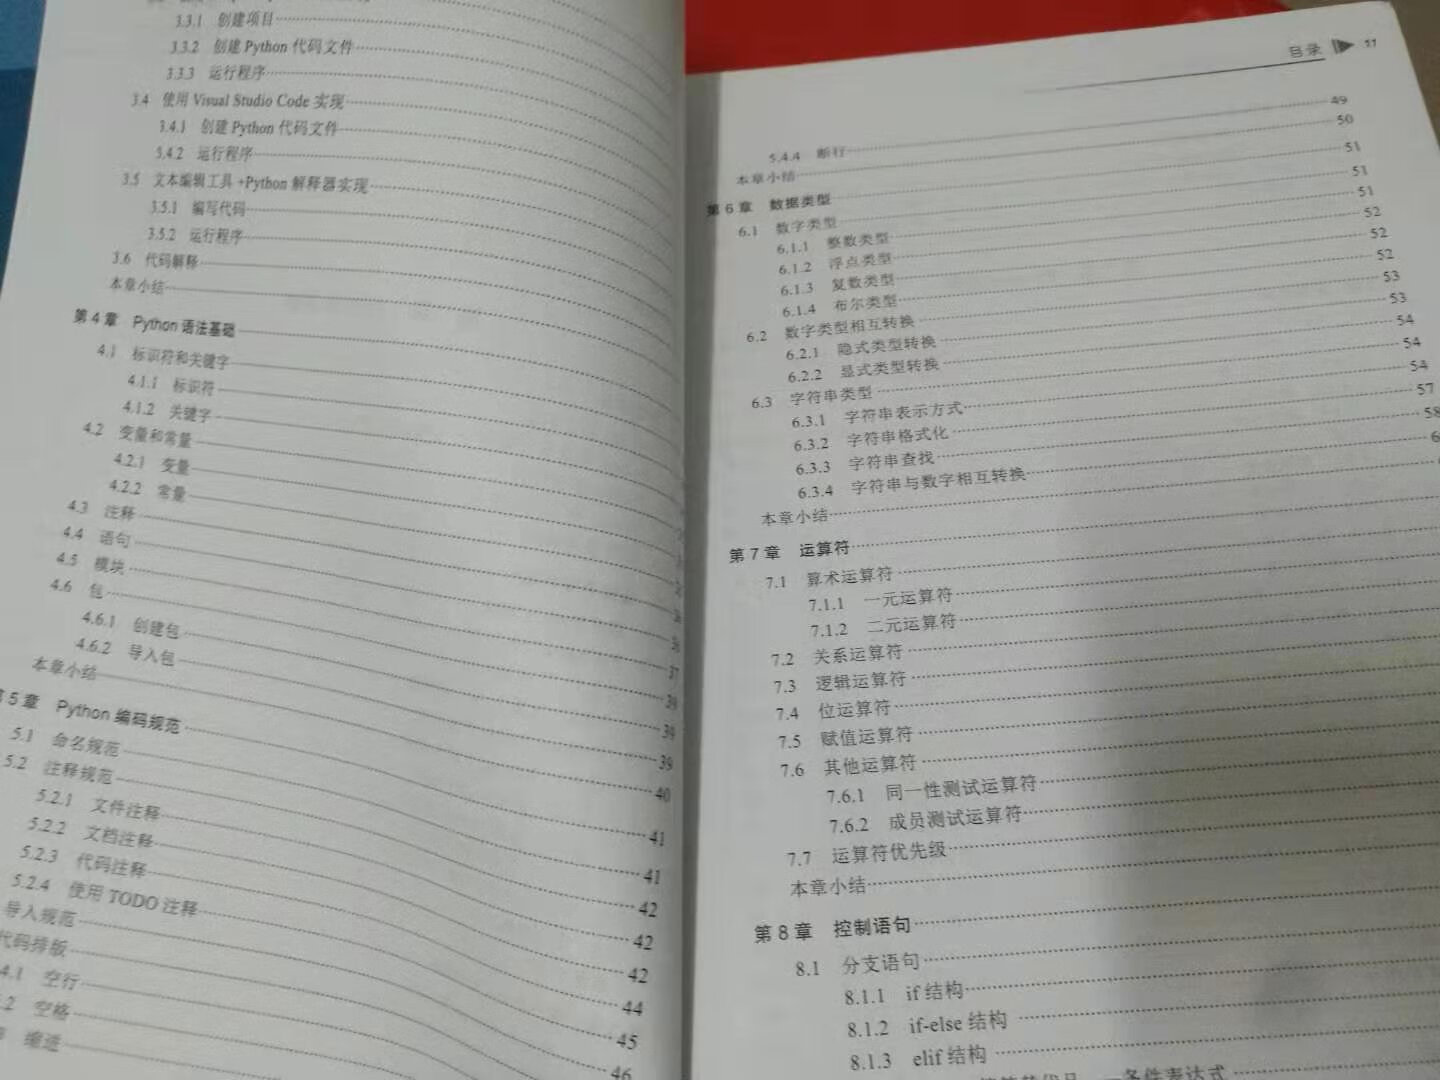 3.3.1 创建项目
3.3.2 创建 Python 代码文件
3.3.3 运行程序
3.4 使用 Visual Studio Code 实现
3.4.1 创建 Python 代码文件
5.4.2 运行程序
3.5 文本编辑工具+Python 解释器实现
3.5.1 编写代码
3.5.2 运行程序
3.6 代码解释
本章小结
第 4 章 Python 语法基础
4.1 标识符和关键字
4.1.1 标识符
4.1.2 关键字
4.2 变量和常量
4.2.1 变量
4.2.2 常量
4.3 注释
4.4 语句
4.5 模块
4.6 包
4.6.1 创建包
4.6.2 导入包
本章小结
5 章 Python 编码规范
5.1 命名规范
5.2 注释规范
5.2.1 文件注释
5.2.2 文档注释
5.2.3 代码注释
5.2.4 使用 TODO 注释
导入规范
代码排版
4.1 空行
.2 空格
缩进
36
36
37
39
39
39
40
41
41
42
42
42
44
45
46
目录
5.4.4 断行 49
本章小结 50
第 6 章 数据类型 51
6.1 数字类型 51
6.1.1 整数类型 51
6.1.2 浮点类型 52
6.1.3 复数类型 52
6.1.4 布尔类型 52
6.2 数字类型相互转换 53
6.2.1 隐式类型转换 53
6.2.2 显式类型转换 54
6.3 字符串类型 54
6.3.1 字符串表示方式 54
6.3.2 字符串格式化 57
6.3.3 字符串查找 58
6.3.4 字符串与数字相互转换
本章小结
第 7 章 运算符
7.1 算术运算符
7.1.1 一元运算符
7.1.2 二元运算符
7.2 关系运算符
7.3 逻辑运算符
7.4 位运算符
7.5 赋值运算符
7.6 其他运算符
7.6.1 同一性测试运算符
7.6.2 成员测试运算符
7.7 运算符优先级
本章小结
第 8 章 控制语句
8.1 分支语句
8.1.1 if 结构
8.1.2 if-else 结构
8.1.3 elif 结构
条件表达式